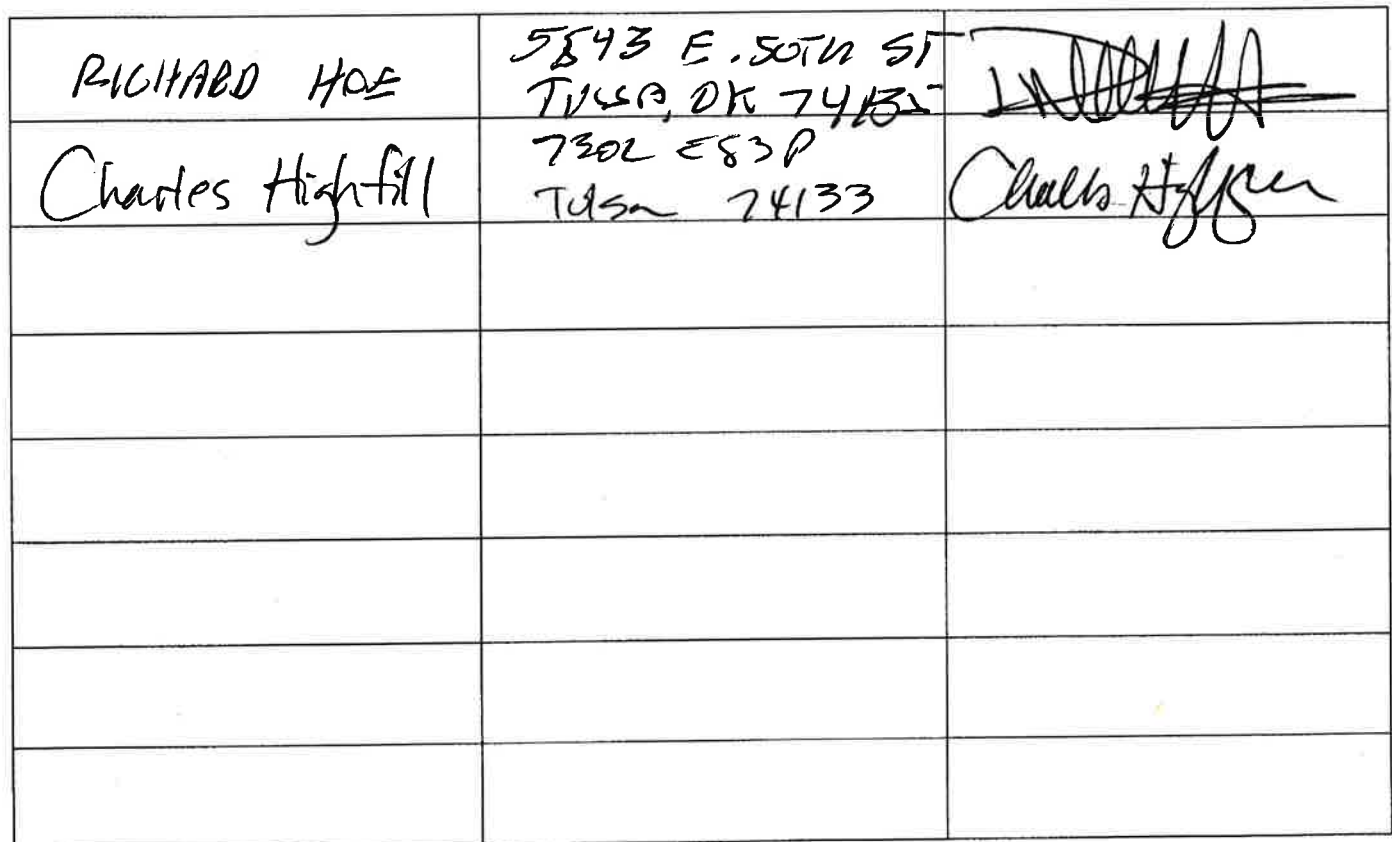 RICHARD HOE
5843 E. 50TH ST
TULSA, OK 74135
Charles Highfill
7302 E 83 P
Tulsa 74133
Charles Highfill